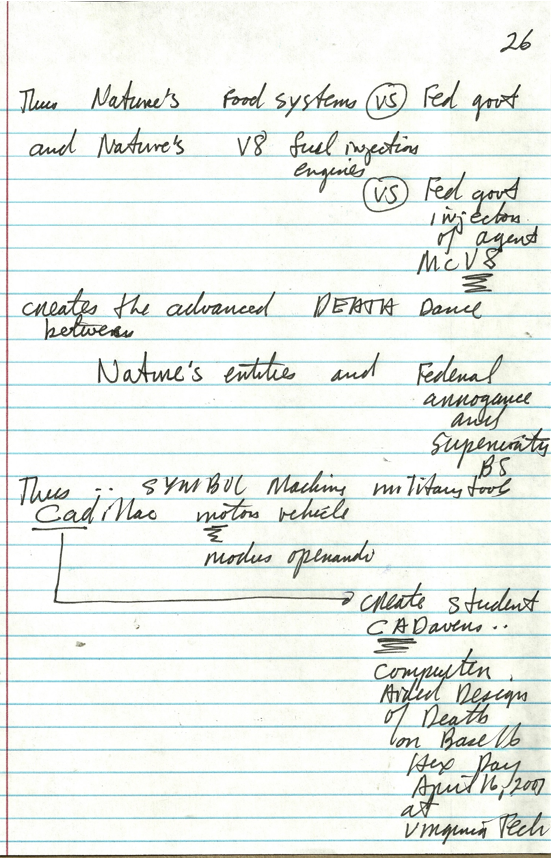 26
Thus Nature's Food systems VS Fed govt
and Nature's V8 fuel injection
engines
VS Fed govt
injection
of agent
McV8
creates the advanced DEATH Dance
between
Nature's entities and Federal
arrogance
and
Superiority
BS
Thus :. SYMBOL Machine military tool
Cadillac motors vehicle
modus operando
create student
CADavers ..
Computer
Aided Design
of Death
on Base 16
Hex Day
April 16, 2007
at
Virginia Tech